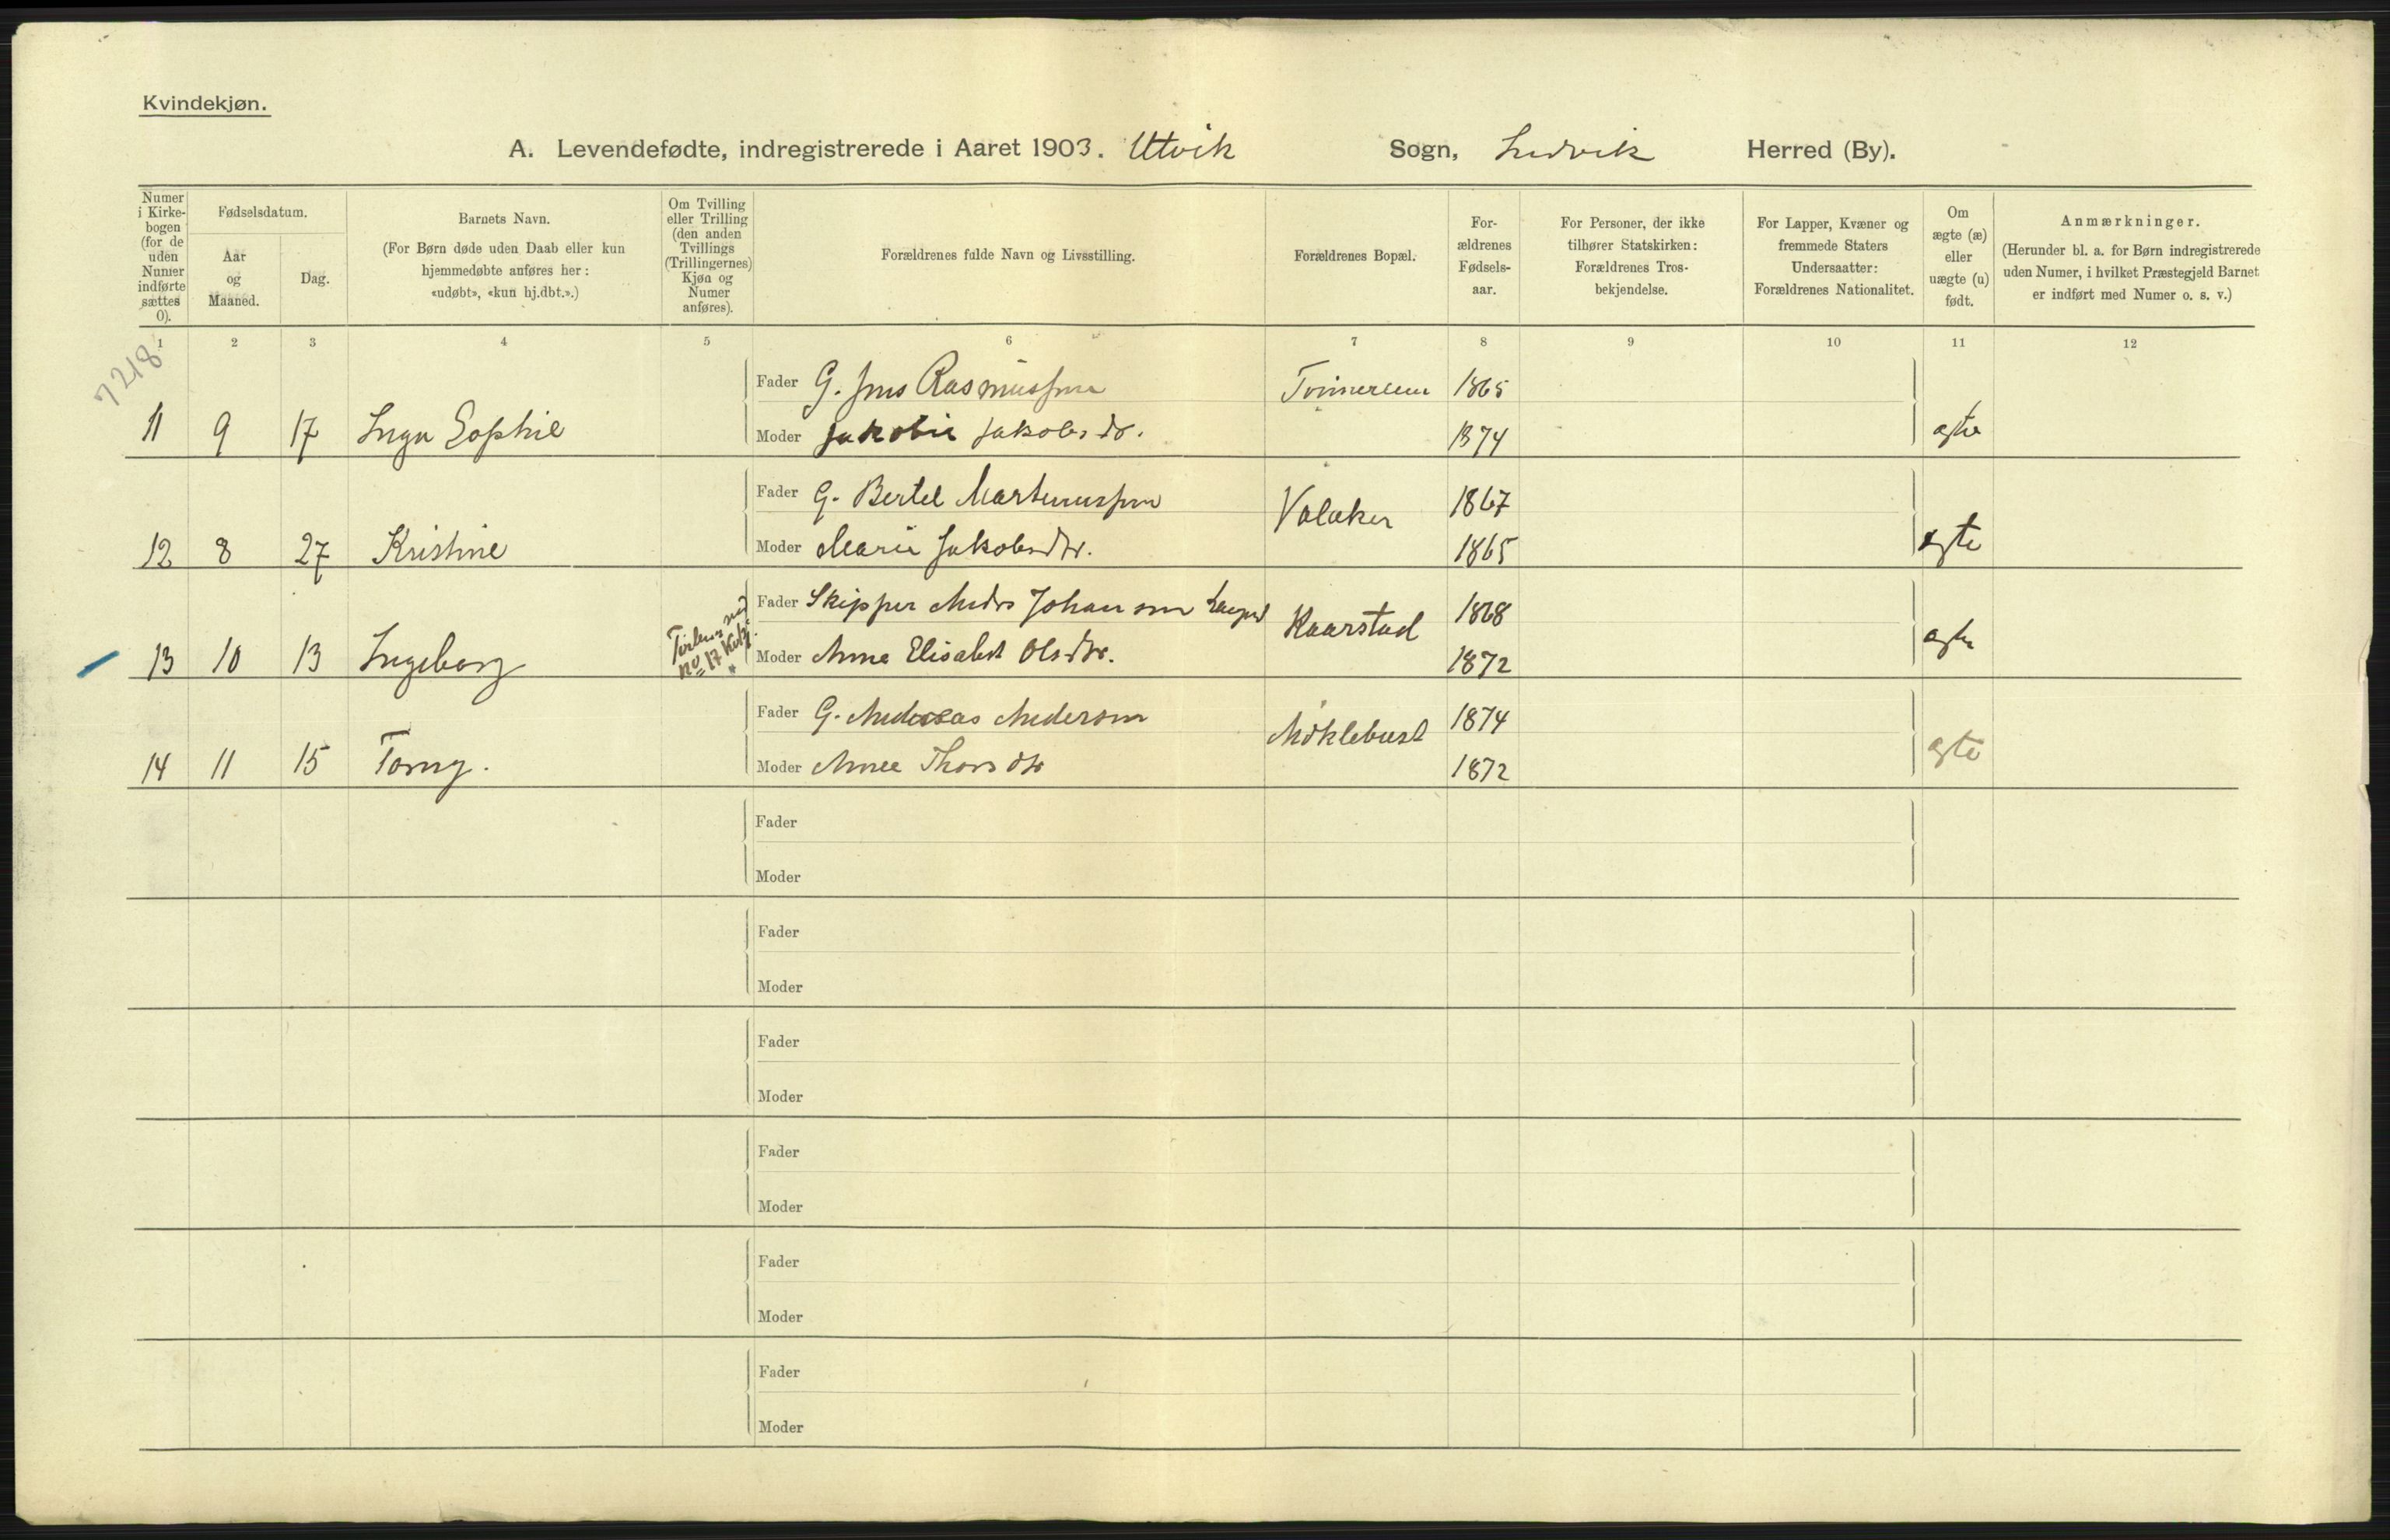 Kvindekjøn.
A. Levendefødte, indregistrerede i Aaret 1903. Utvik Sogn, Indvik Herred (By).
Numer i Kirke-bogen (for de uden Numer indførte sættes 0).
Fødselsdatum.
Aar og Maaned.
Dag.
Barnets Navn.
(For Børn døde uden Daab eller kun hjemmedøbte anføres her: «udøbt», «kun hj.dbt.».)
Om Tvilling eller Trilling (den anden Tvillings (Trillingernes) Kjøn og Numer anføres).
Forældrenes fulde Navn og Livsstilling.
Forældrenes Bopæl.
For-ældrenes Fødsels-aar.
For Personer, der ikke tilhører Statskirken: Forældrenes Tros-bekjendelse.
For Lapper, Kvæner og fremmede Staters Undersaatter: Forældrenes Nationalitet.
Om ægte (æ) eller uægte (u) født.
Anmærkninger.
(Herunder bl. a. for Børn indregistrerede uden Numer, i hvilket Præstegjeld Barnet er indført med Numer o. s. v.)
1 2 3 4 5 6 7 8 9 10 11 12
7218
Fader G. Jens Rasmussen 1865
11 9 17 Inga Sophie Moder Jakobie Jakobsdr. 1874 ægte
Fader G. Bertel Martinussen Valaker 1867
12 8 27 Kristine Moder Marie Jakobsdtr. 1865 ægte
Fader Skipper Anders Johanson Kaarstad 1868
13 10 13 Ingeborg No 17 Moder Anna Elisabet Olsdtr. 1872 ægte
Fader G. Andreas Anderson Myklebust 1874
14 11 15 Torny. Moder Anne Thorsdtr 1872 ægte
Fader
Moder
Fader
Moder
Fader
Moder
Fader
Moder
Fader
Moder
Fader
Moder